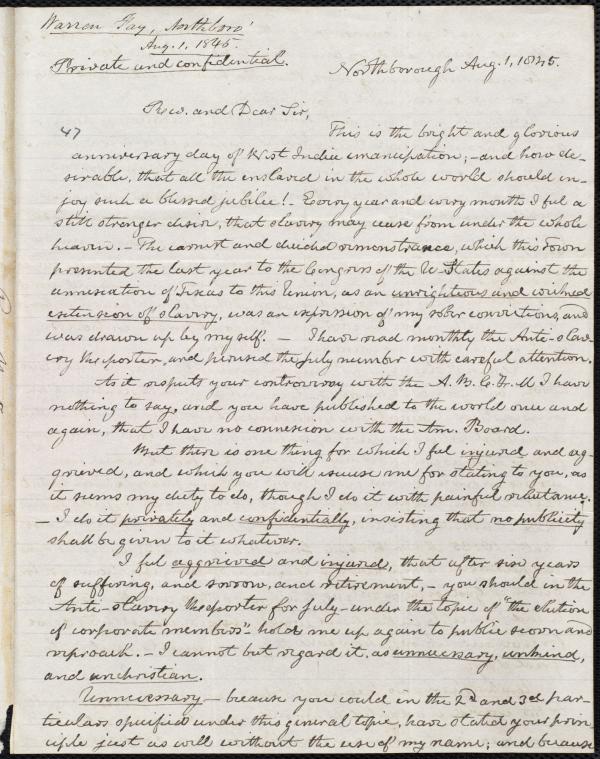 Warren Fay, Northboro'
Aug. 1, 1845.
Private and confidential.
Northborough Aug. 1, 1845.
Rev. and Dear Sir,
47
This is the bright and glorious
anniversary day of West India emancipation; - and how de-
sirable, that all the enslaved in the whole world should en-
joy such a blessed jubilee! - Every year and every month I feel a
still stronger desire, that slavery may cease from under the whole
heaven. - The earnest and decided remonstrance, which this town
presented the last year to the Congress of the U. States against the
annexation of Texas to this Union, as an unrighteous and wicked
extension of slavery, was an expression of my sober convictions, and
was drawn up by myself. - I have read monthly the Anti-slav-
ery Reporter, and perused the July number with careful attention.
As it respects your controversy with the A. B. C. F. M I have
nothing to say, and you have published to the world once and
again, that I have no connexion with the Am. Board.
But there is one thing for which I feel injured and ag-
grieved, and which you will excuse me for stating to you, as
it seems my duty to do, though I do it with painful reluctance.
- I do it privately and confidentially, insisting that no publicity
shall be given to it whatever.
I feel aggrieved and injured, that after six years
of suffering, and sorrow, and retirement, - you should in the
Anti-slavery Reporter for July - under the topic of "the election
of corporate members" - hold me up again to public scorn and
reproach. - I cannot but regard it, as unnecessary, unkind,
and unchristian.
Unnecessary - because you could in the 2d and 3d par-
ticulars specified under this general topic, have stated your prin-
ciple just as well without the use of my name; and because